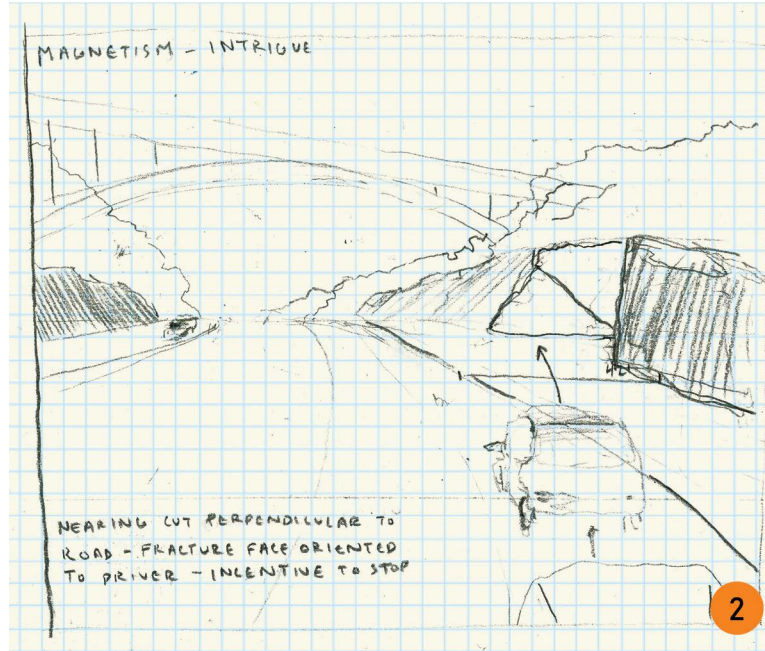 MAGNETISM - INTRIGUE
NEARING CUT PERPENDICULAR TO
ROAD - FRACTURE FACE ORIENTED
TO DRIVER - INCENTIVE TO STOP
2